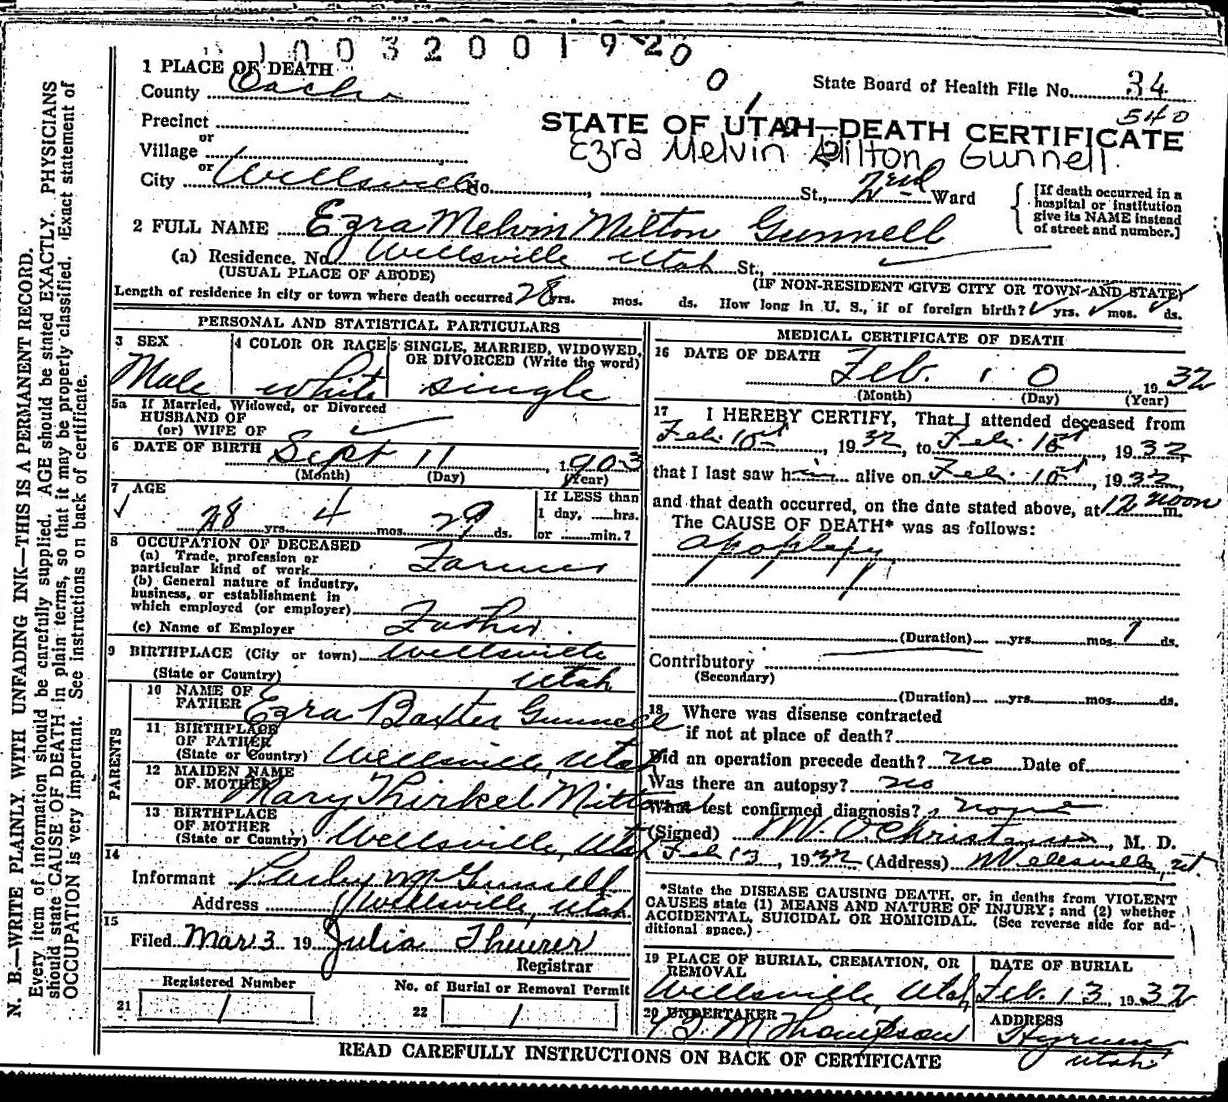 1003200192001
1 PLACE OF DEATH
County Cache
State Board of Health File No. 34
540
Precinct
or
Village
or
City Wellsville No. St., 2nd Ward
STATE OF UTAH—DEATH CERTIFICATE
Ezra Melvin Gunnell
[If death occurred in a
hospital or institution
give its NAME instead
of street and number.]
2 FULL NAME Ezra Melvin Milton Gunnell
(a) Residence. No. Wellsville Utah St.,
(USUAL PLACE OF ABODE) (IF NON-RESIDENT GIVE CITY OR TOWN AND STATE)
Length of residence in city or town where death occurred 28 yrs. mos. ds. How long in U. S., if of foreign birth? yrs. mos. ds.
PERSONAL AND STATISTICAL PARTICULARS
3 SEX
Male
4 COLOR OR RACE
white
5 SINGLE, MARRIED, WIDOWED,
OR DIVORCED (Write the word)
single
5a If Married, Widowed, or Divorced
HUSBAND OF
(or) WIFE OF
6 DATE OF BIRTH Sept 11, 1903
(Month) (Day) (Year)
7 AGE
28 yrs. 4 mos. 29 ds.
If LESS than
1 day, hrs.
or min.?
8 OCCUPATION OF DECEASED
(a) Trade, profession or
particular kind of work Farmer
(b) General nature of industry,
business, or establishment in
which employed (or employer)
(c) Name of Employer Father
9 BIRTHPLACE (City or town) Wellsville
(State or Country) Utah
PARENTS
10 NAME OF
FATHER Ezra Baxter Gunnell
11 BIRTHPLACE
OF FATHER
(State or Country) Wellsville, Utah
12 MAIDEN NAME
OF MOTHER Mary Thirkel
13 BIRTHPLACE
OF MOTHER
(State or Country) Wellsville, Utah
14
Informant Gunnell
Address Wellsville, Utah
15
Filed Mar 3 19 Julia Theurer
Registrar
Registered Number
21 1
No. of Burial or Removal Permit
22 1
MEDICAL CERTIFICATE OF DEATH
16 DATE OF DEATH Feb. 10, 1932
(Month) (Day) (Year)
17 I HEREBY CERTIFY, That I attended deceased from
Feb. 10, 1932, to Feb. 10, 1932,
that I last saw him alive on Feb. 10, 1932,
and that death occurred, on the date stated above, at 12 noon m.
The CAUSE OF DEATH* was as follows:
apoplexy
(Duration) yrs. mos. 1 ds.
Contributory
(Secondary)
(Duration) yrs. mos. ds.
18 Where was disease contracted
if not at place of death?
Did an operation precede death? no Date of
Was there an autopsy? no
What test confirmed diagnosis? none
(Signed) M. Christensen, M. D.
Feb 13, 1932 (Address) Wellsville, Ut.
*State the DISEASE CAUSING DEATH, or, in deaths from VIOLENT
CAUSES state (1) MEANS AND NATURE OF INJURY; and (2) whether
ACCIDENTAL, SUICIDAL OR HOMICIDAL. (See reverse side for ad-
ditional space.)
19 PLACE OF BURIAL, CREMATION, OR
REMOVAL
Wellsville, Utah
DATE OF BURIAL
Feb. 13, 1932
20 UNDERTAKER
M Thompson
ADDRESS
Hyrum
Utah
READ CAREFULLY INSTRUCTIONS ON BACK OF CERTIFICATE
N. B.—WRITE PLAINLY WITH UNFADING INK—THIS IS A PERMANENT RECORD.
Every item of information should be carefully supplied. AGE should be stated EXACTLY. PHYSICIANS
should state CAUSE OF DEATH in plain terms, so that it may be properly classified. Exact statement of
OCCUPATION is very important. See instructions on back of certificate.